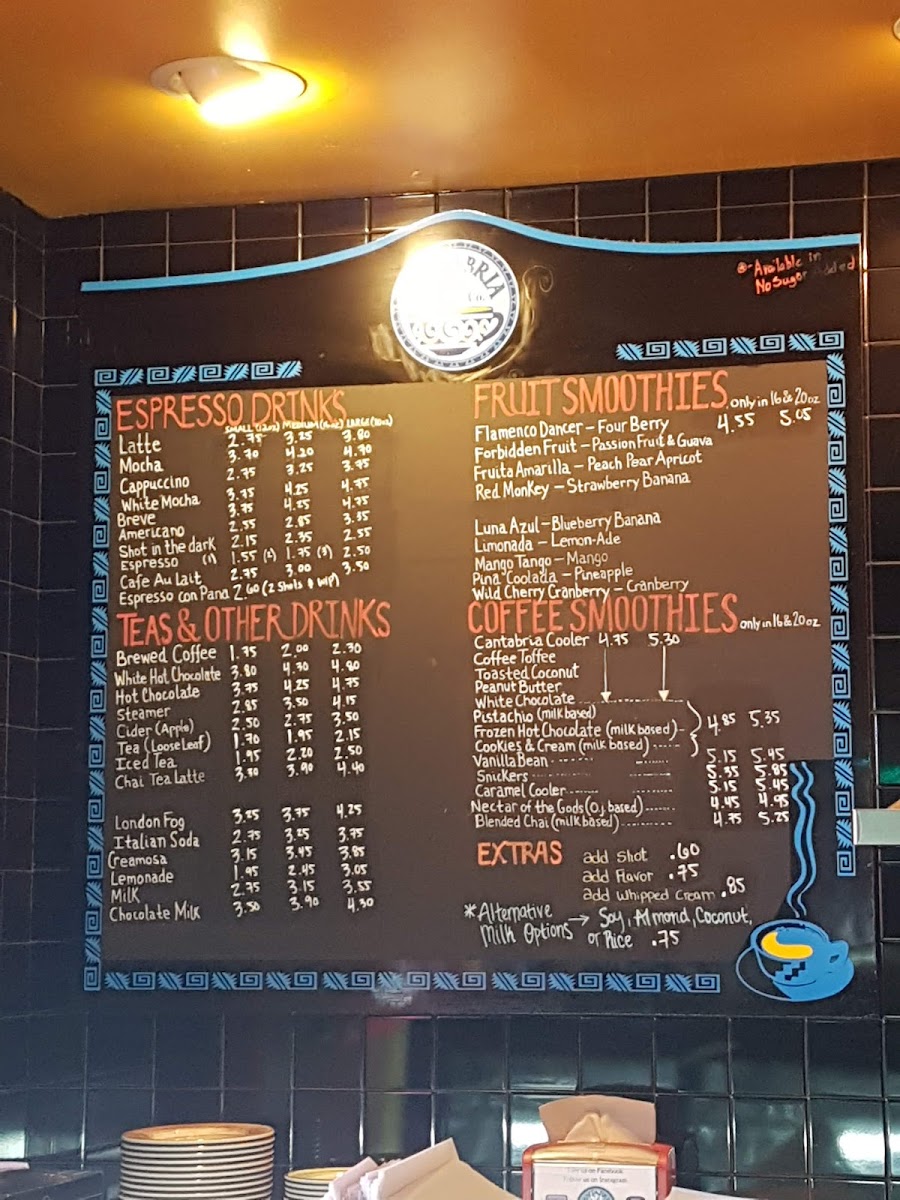 BRIA
Co.
Available in
No Sugar Added
ESPRESSO DRINKS
SMALL (12oz) MEDIUM LARGE (20oz)
Latte 2.75 3.25 3.80
Mocha 3.70 4.20 4.70
Cappuccino 2.75 3.25 3.75
White Mocha 3.75 4.25 4.75
Breve 3.75 4.25 4.75
Americano 2.55 2.85 3.35
Shot in the dark 2.15 2.35 2.55
Espresso (1) 1.55 (2) 1.75 (3) 2.50
Cafe Au Lait 2.75 3.00 3.50
Espresso con Pana 2.60 (2 Shots & Whip)
TEAS & OTHER DRINKS
Brewed Coffee 1.75 2.00 2.30
White Hot Chocolate 3.80 4.30 4.80
Hot Chocolate 3.75 4.25 4.75
Steamer 2.85 3.50 4.15
Cider (Apple) 2.50 2.75 3.50
Tea (Loose Leaf) 1.70 1.95 2.15
Iced Tea 1.95 2.20 2.50
Chai Tea Latte 3.50 3.90 4.40
London Fog 3.25 3.75 4.25
Italian Soda 2.75 3.25 3.75
Creamosa 3.15 3.45 3.85
Lemonade 1.95 2.45 3.05
Milk 2.75 3.15 3.55
Chocolate Milk 3.50 3.90 4.30
FRUIT SMOOTHIES only in 16 & 20oz
Flamenco Dancer - Four Berry 4.55 5.05
Forbidden Fruit - Passion Fruit & Guava
Fruita Amarilla - Peach Pear Apricot
Red Monkey - Strawberry Banana
Luna Azul - Blueberry Banana
Limonada - Lemon-Ade
Mango Tango - Mango
Pina Coolada - Pineapple
Wild Cherry Cranberry - Cranberry
COFFEE SMOOTHIES only in 16 & 20oz
Cantabria Cooler 4.75 5.30
Coffee Toffee
Toasted Coconut
Peanut Butter
White Chocolate
Pistachio (milk based)
Frozen Hot Chocolate (milk based) 4.85 5.35
Cookies & Cream (milk based)
Vanilla Bean 5.15 5.45
Snickers 5.35 5.85
Caramel Cooler 5.15 5.45
Nectar of the Gods (O.J. based) 4.45 4.95
Blended Chai (milk based) 4.75 5.25
EXTRAS add Shot .60
add Flavor .75
add Whipped Cream .85
*Alternative → Soy, Almond, Coconut,
Milk Options or Rice .75
us on Facebook
us on Instagram